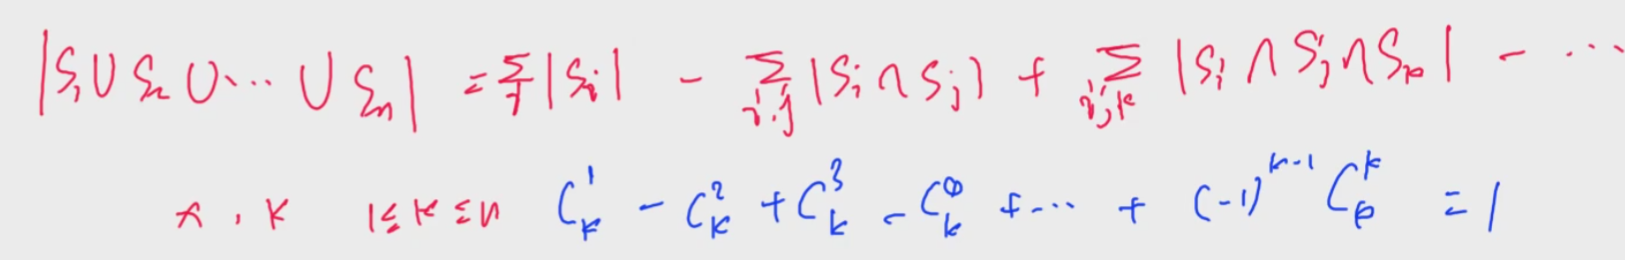 |S₁ ∪ S₂ ∪ ⋯ ∪ Sₙ| = Σᵢ |Sᵢ| − Σᵢ,ⱼ |Sᵢ ∩ Sⱼ| + Σᵢ,ⱼ,ₖ |Sᵢ ∩ Sⱼ ∩ Sₖ| − ⋯
x, k 1 ≤ k ≤ n C_k^1 − C_k^2 + C_k^3 − C_k^4 + ⋯ + (−1)^{k−1} C_k^k = 1